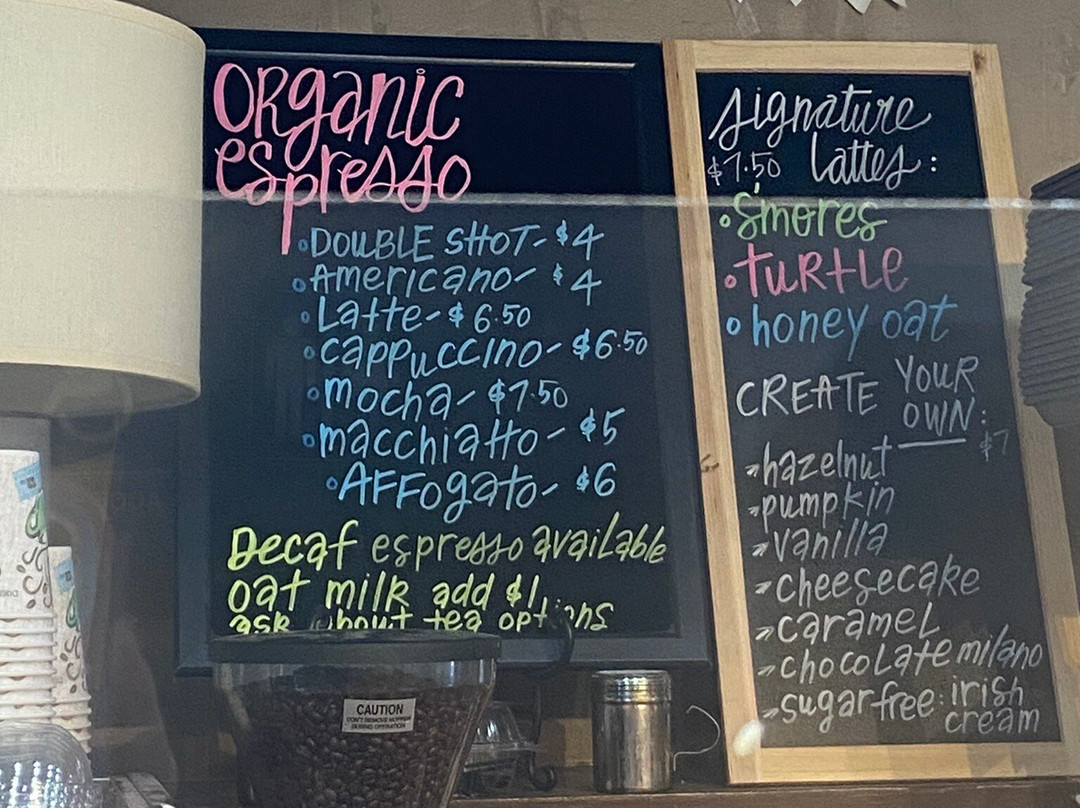 ORganic
espresso
•DOUBLE SHOT- $4
•Americano- $4
•Latte- $6.50
•cappuccino- $6.50
•mocha- $7.50
•macchiatto- $5
•AFFogato- $6
Decaf espresso available
oat milk add $1
ask about tea options
signature
$7.50 lattes:
•S'mores
•TURtLE
•honey oat
CREATE YOUR
OWN: $7
hazelnut
pumpkin
vanilla
cheesecake
caramel
chocolate milano
sugarfree: irish
cream
CAUTION
DON'T REMOVE HOPPER
DURING OPERATION